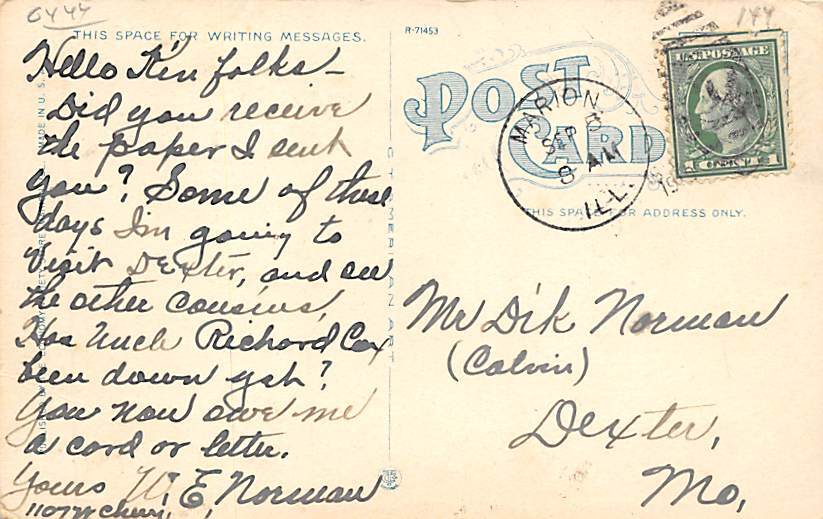 6444
144
THIS SPACE FOR WRITING MESSAGES.
R-71453
Hello Kin folks –
Did you receive
the paper I sent
you? Some of these
days I'm going to
Visit Dexter, and see
the other cousins,
Has Uncle Richard Cox
been down yet?
You now owe me
a card or letter.
Yours W. E. Norman
1107 W Cherry
MADE IN U.S.
POST
CARD
THIS SPACE FOR ADDRESS ONLY.
MARION
SEP 3
8 AM
ILL.
19
U.S. POSTAGE
1 CENT 1
Mr Dik Norman
(Calvin)
Dexter,
Mo,